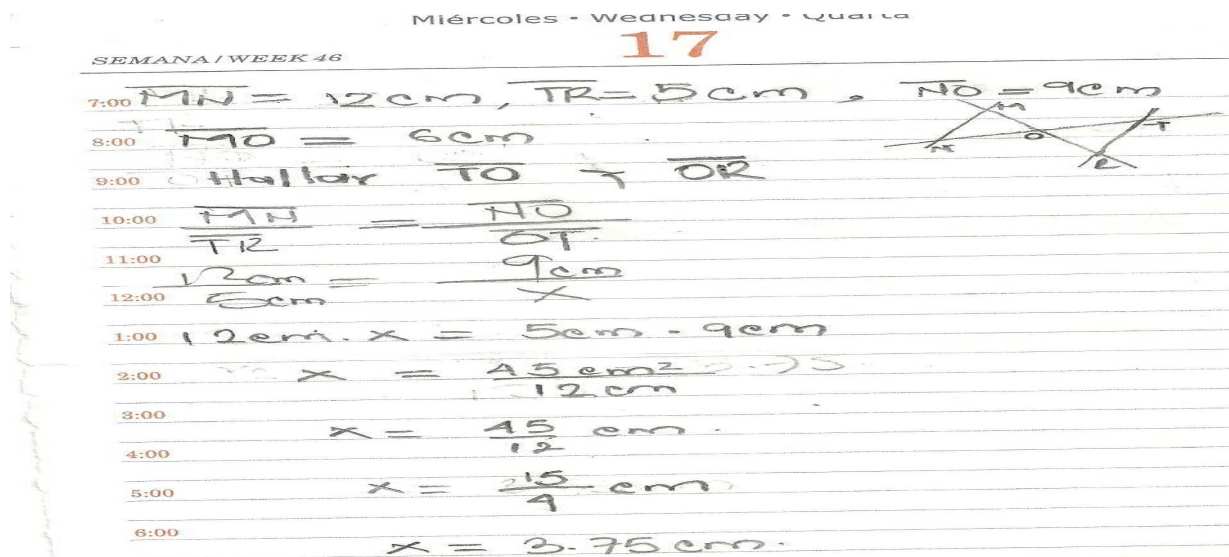 Miércoles • Wednesday • Quarta
SEMANA / WEEK 46
17
7:00 MN = 12 cm, TR = 5 cm, NO = 9cm
8:00 MO = 6cm
M
N
O
T
R
9:00 Hallar TO y OR
10:00 MN = NO
TR OT
11:00
12cm = 9cm
12:00 5cm x
1:00 12cm . x = 5cm - 9cm
2:00 x = 45 cm²
12 cm
3:00
x = 45 cm.
4:00 12
5:00 x = 15 cm
4
6:00
x = 3.75 cm.